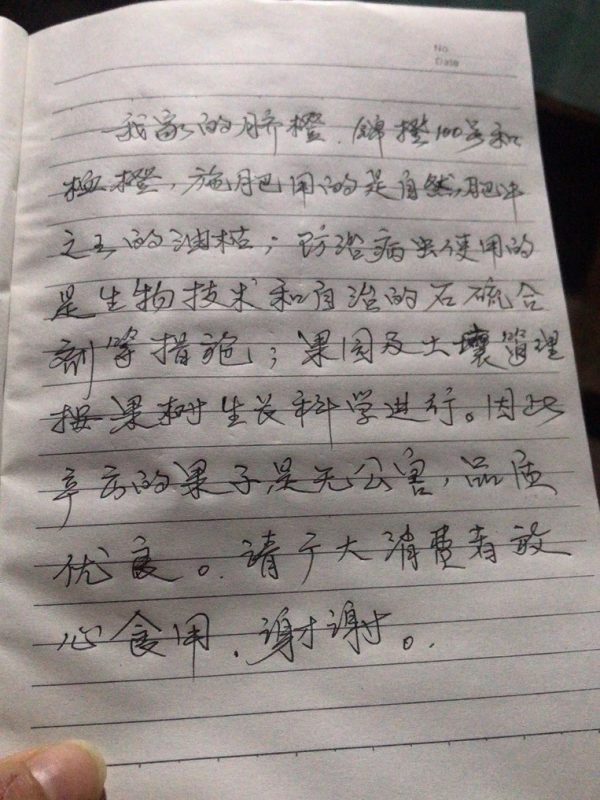 No
Date
我家的脐橙、锦橙100号和
橙,施肥用的是自然肥中
之王的油枯;防治病虫使用的
是生物技术和自治的石硫合
剂等措施;果园及土壤管理
按果树生长科学进行。因此
产的果子是无公害,品质
优良。请广大消费者放
心食用、谢谢。